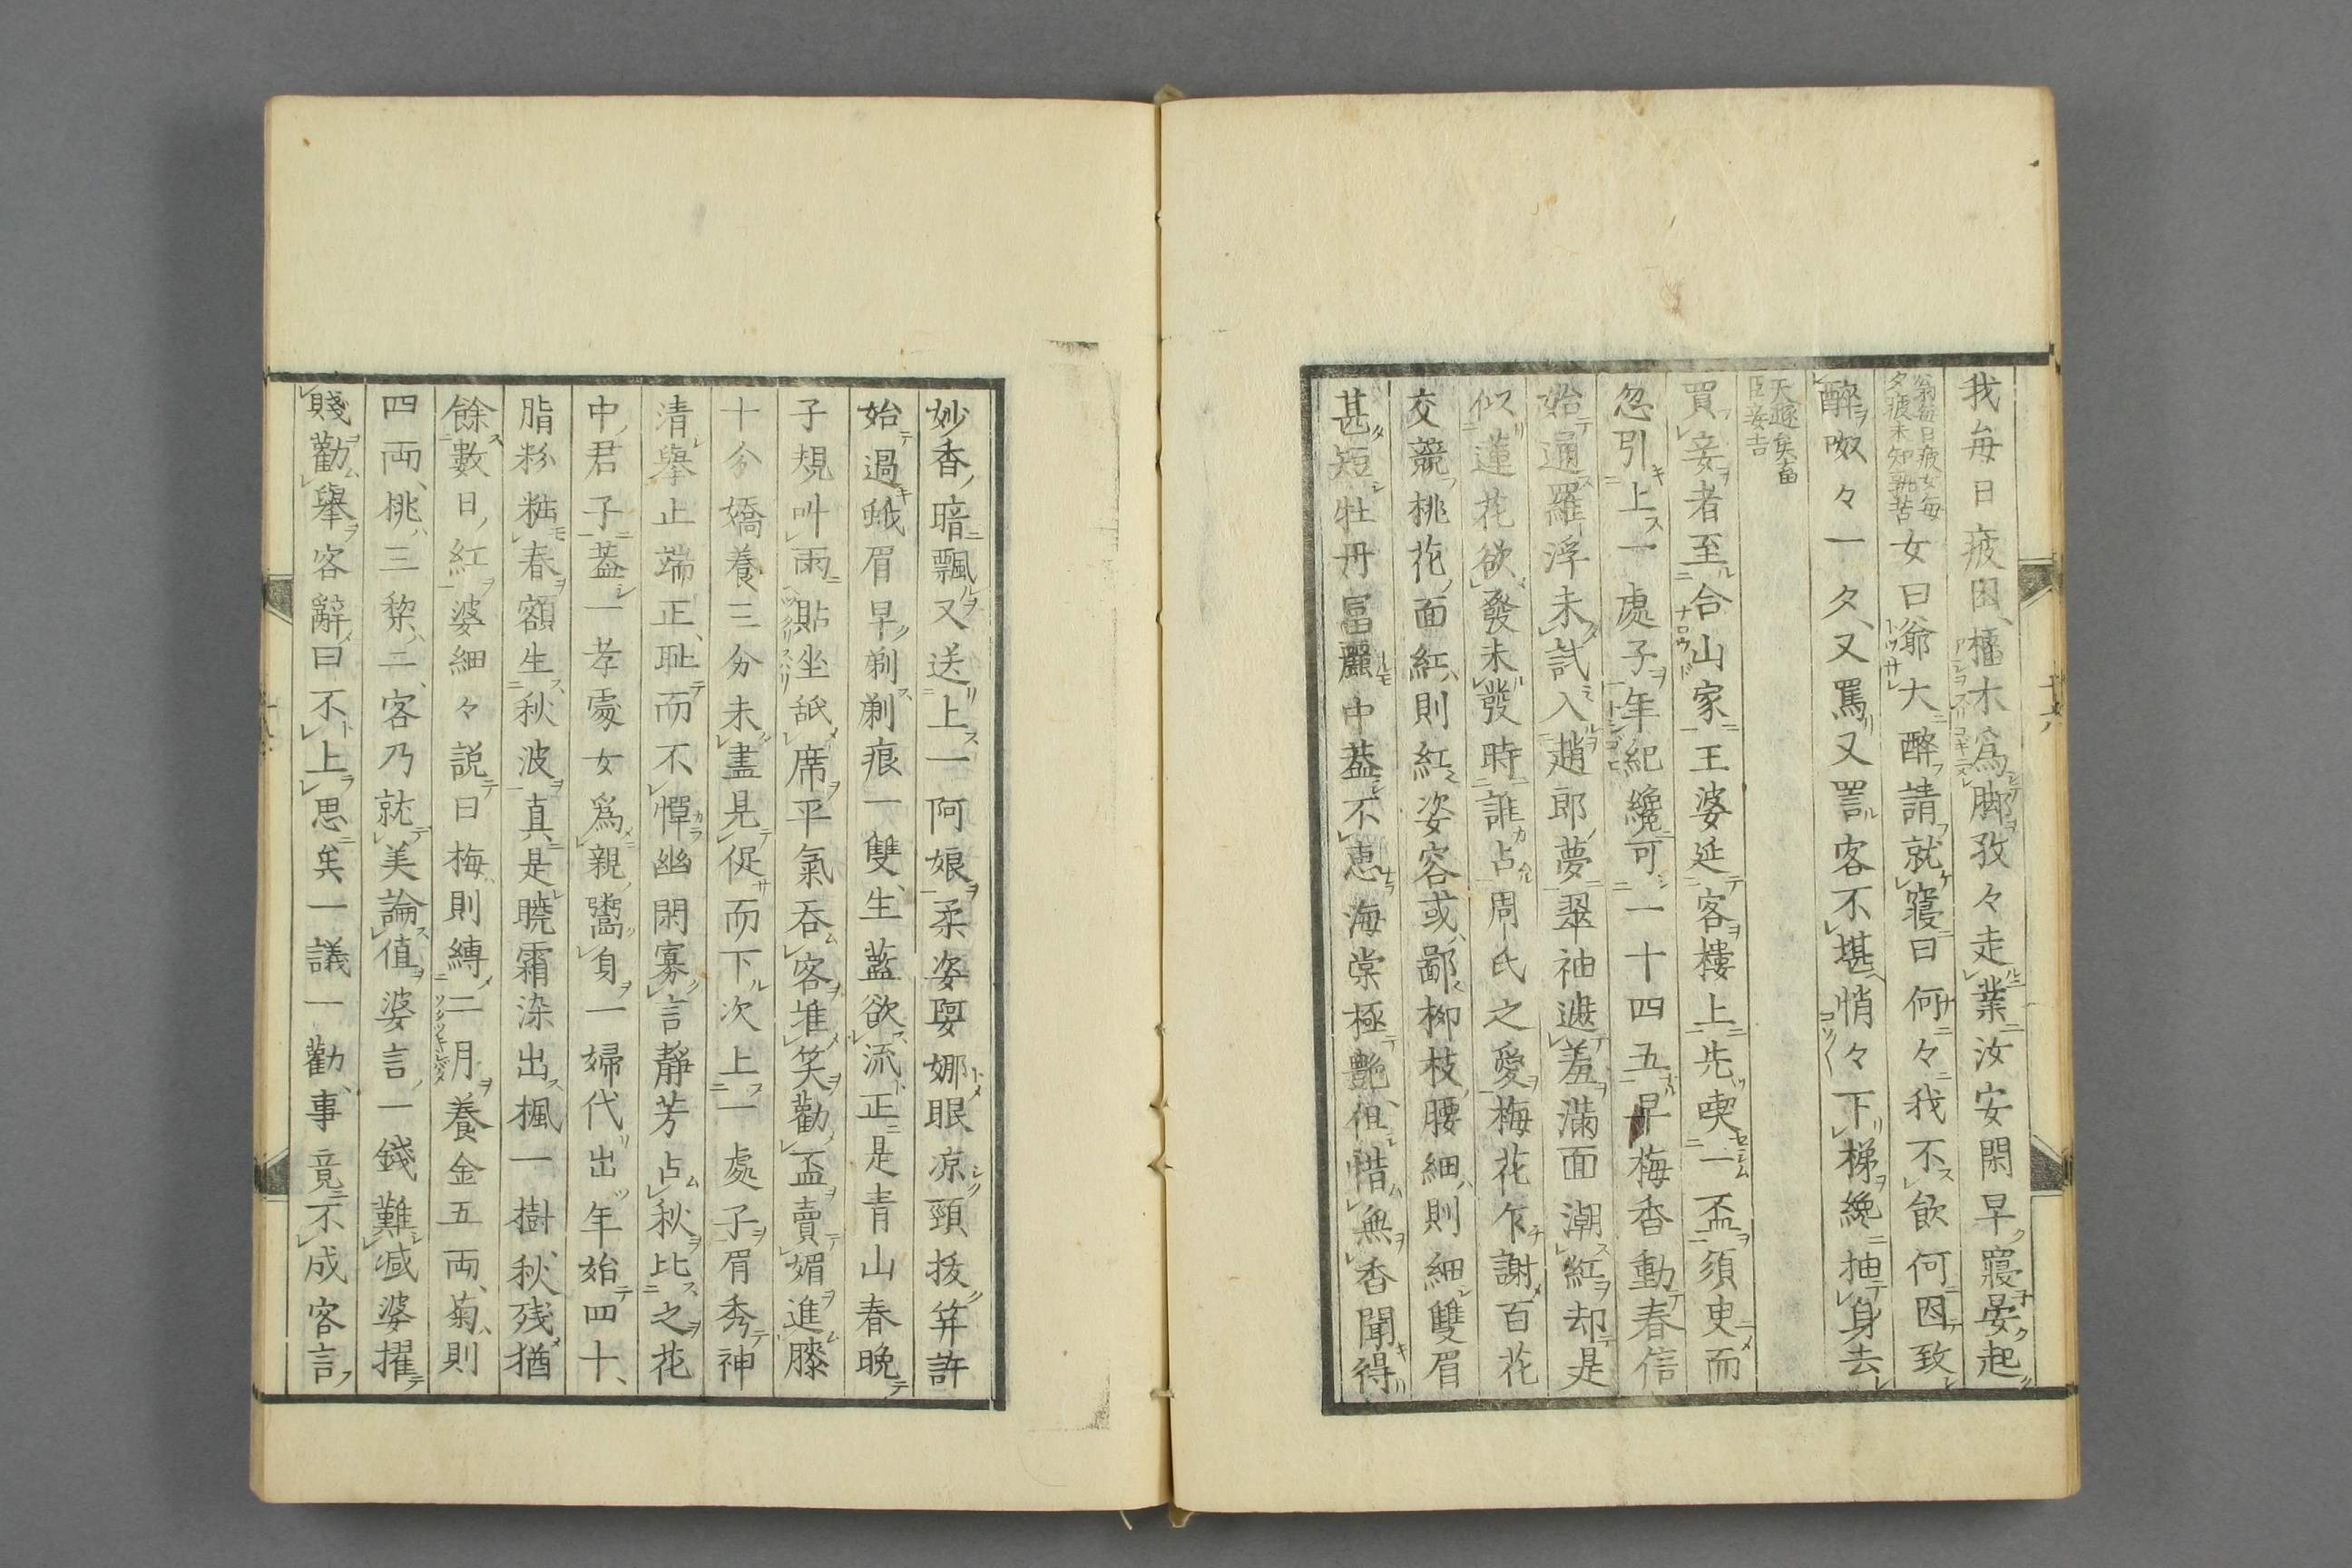 我毎日疲困、橿木爲脚孜々走業汝安閑早寢晏起
翁毎日疲女毎
夕疲未知孰苦
女曰爺大醉請就寢曰何々我不飲何因致
醉呶々一夕又罵又詈客不堪悄々下梯纔抽身去
天趣矣畜
臣妾吉
買妾者至合山家王婆延客樓上先喫一盃須臾而
忽引上一處子年紀纔可一十四五早梅香動春信
始通羅浮未試入趙郎夢翠袖遮羞滿面潮紅却是
似蓮花欲發未發時誰占周氏之愛梅花乍謝百花
交競桃花面紅則紅姿容或鄙柳枝腰細則細雙眉
甚短牡丹富麗中葢不恵海棠極艶但惜無香聞得
妙香暗飄又送上一阿娘柔姿娿娜眼凉頸拔笄許
始過蛾眉早剃剃痕一雙生藍欲流正是青山春晩
子規叫雨貼坐舐席平氣呑客堆笑勸盃賣媚進膝
十分嬌養三分未盡見促而下次上一處子眉秀神
清擧止端正耻而不憚幽閑寡言靜芳占秋比之花
中君子葢一孝處女爲親鬻身一婦代出年始四十、
脂粉粘春額生秋波真是曉霜染出楓一樹秋残猶
餘數日紅婆細々説曰梅則縛二月養金五両、菊則
四両、桃三梨二、客乃就美論値婆言一錢難減婆擢
賤勸擧客辭曰不上思矣一議一勸事竟不成客言